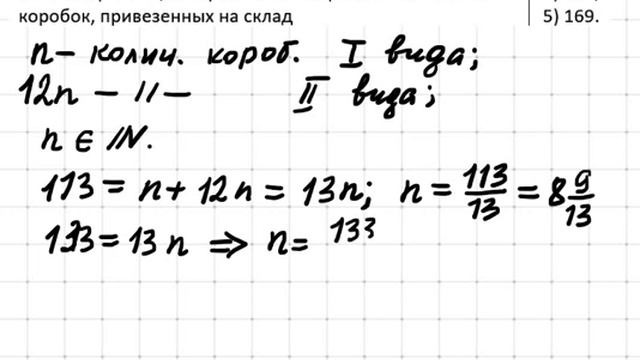 коробок, привезенных на склад
5) 169.
n – колич. короб. I вида;
12n – // – II вида;
n ∈ IN.
113 = n + 12n = 13n; n = 113/13 = 8 9/13
133 = 13n ⇒ n = 133